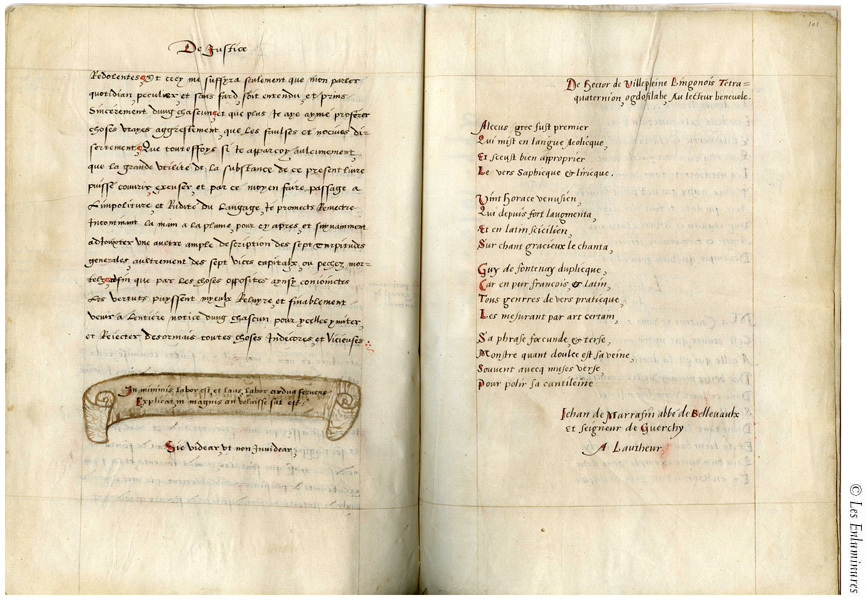 De Justice
Redolentes, Et cecy me suffyra seulement que mon parler
quotidian, peculier, et sans fard, soit entendu, et prins
Sincerement dung chascun, et que plus Je ayme proferer
choses vrayes aggrestement, que les faulses et nocives di-
sertement, Que touteffoys si Je apparcoy aulcunement
que la grande utilite de la substance de ce present livre
puisse couvrir, excuser, et par ce moyen faire passage a
L'impoliture, et Rudite du Langage, Je promects Remectre
Incontinant la main a la plume, pour cy apres, et suyvamment
adjouxter une aultre ample description des sept Turpitudes
generales, aultrement des sept vices capitaulx, ou pechez mor-
telz, Afin que par les choses opposites aynsi conjoinctes
Les vertuts puyssent myeulx Reluyre, et finablement
venir a Lentiere notice dung chascun pour ycelles ymiter,
et Rejecter desormais toutes choses Indecores, et Vicieuses.
In minimis labor est, et laus, labor ardua
Explicat, in magnis an voluisse sat est.
Sic videar, ut non Invidear,
101
De Hector de Villepleine Lingonois Tetra=
quaternion, ogdosilabe, Au lecteur benevole.
Alceus grec fust premier
Qui mist en langue Aeolicque,
Et sceust bien approprier
Le vers Saphicque & liricque.
Vint Horace venusien,
Qui depuis fort laugmenta,
Et en latin sicilien,
Sur chant gracieux le chanta,
Guy de fontenay duplicque,
Car en pur francois, & latin,
Tous genrres de vers praticque,
Les mesurant par art certain,
Sa phrase foecunde, & terse,
Monstre quant doulce est sa veine,
Souvent avecq muses verse
Pour polir sa cantilene
Jehan de Marrasin abbe de Bellevaulx
Et seigneur de Guerchy
A Lautheur
© Les Enluminures